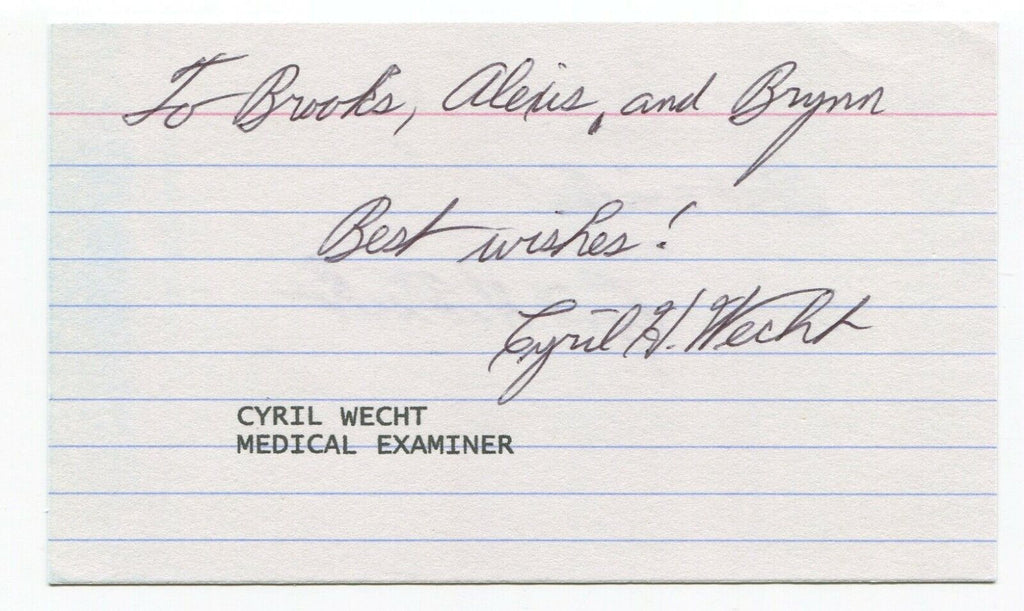 To Brooks, Alexis, and Brynn
Best wishes!
Cyril H. Wecht
CYRIL WECHT
MEDICAL EXAMINER